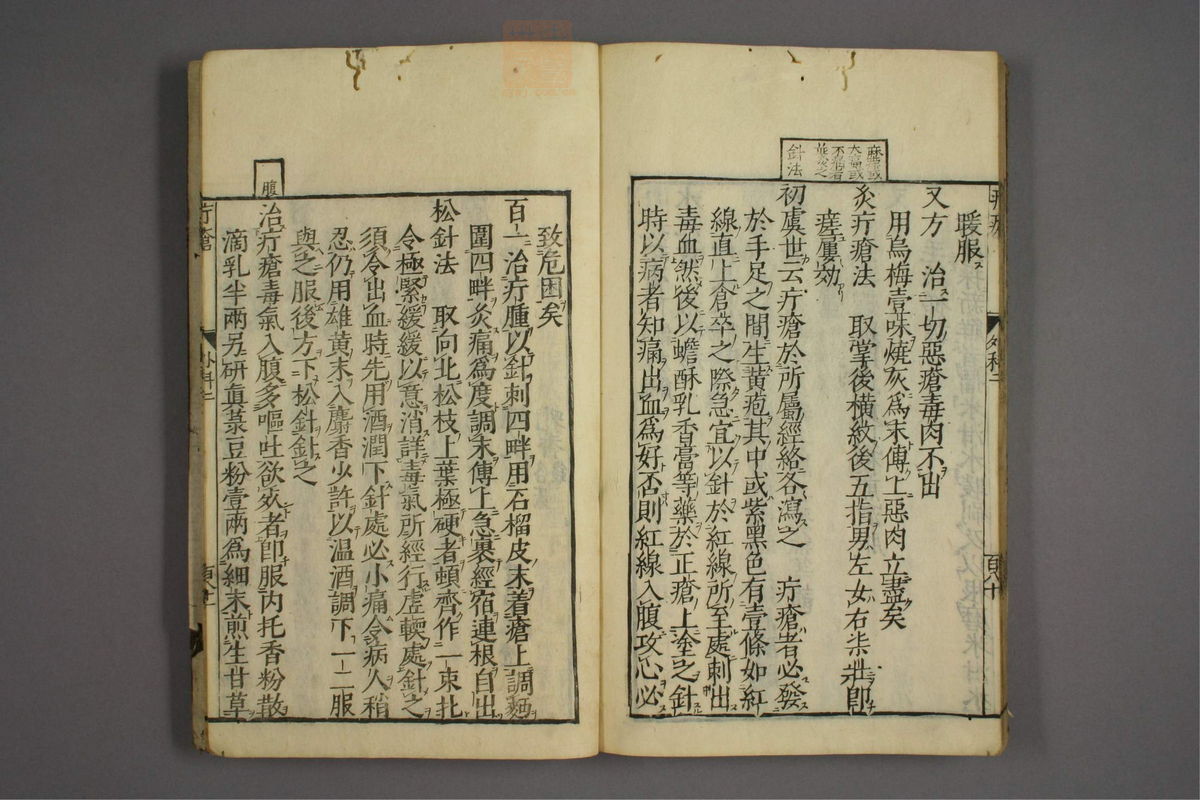 暖服
又方　治一切惡瘡毒肉不出
用烏梅壹味燒灰爲末傅上惡肉立盡矣
灸疔瘡法　取掌後横紋後五指男左女右柒壯即
瘥屢効
初虞世云疔瘡於所屬經絡各瀉之　疔瘡者必發
於手足之間生黄疱其中或紫黑色有壹條如紅
線直上倉卒之際急宜以針於紅線所至處刺出
毒血然後以蟾酥乳香膏等藥於正瘡上塗之針
時以病者知痛出血爲好否則紅線入腹攻心必
針法
致危困矣
百一治疔腫以針刺四畔用石榴皮末着瘡上調麵
圍四畔灸痛爲度調末傅上急裹經宿連根自出
松針法　取向北松枝上葉極硬者頓齊作一束扎
令極緊緩緩以意消詳毒氣所經行虛輭處針之
須令出血時先用酒潤下針處必小痛令病人稍
忍仍用雄黄末入麝香少許以温酒調下一二服
與之服後方下松針針之
腹
治疔瘡毒氣入腹多嘔吐欲死者即服内托香粉散
滴乳半兩另研真菉豆粉壹兩爲細末煎生甘草
疔瘡